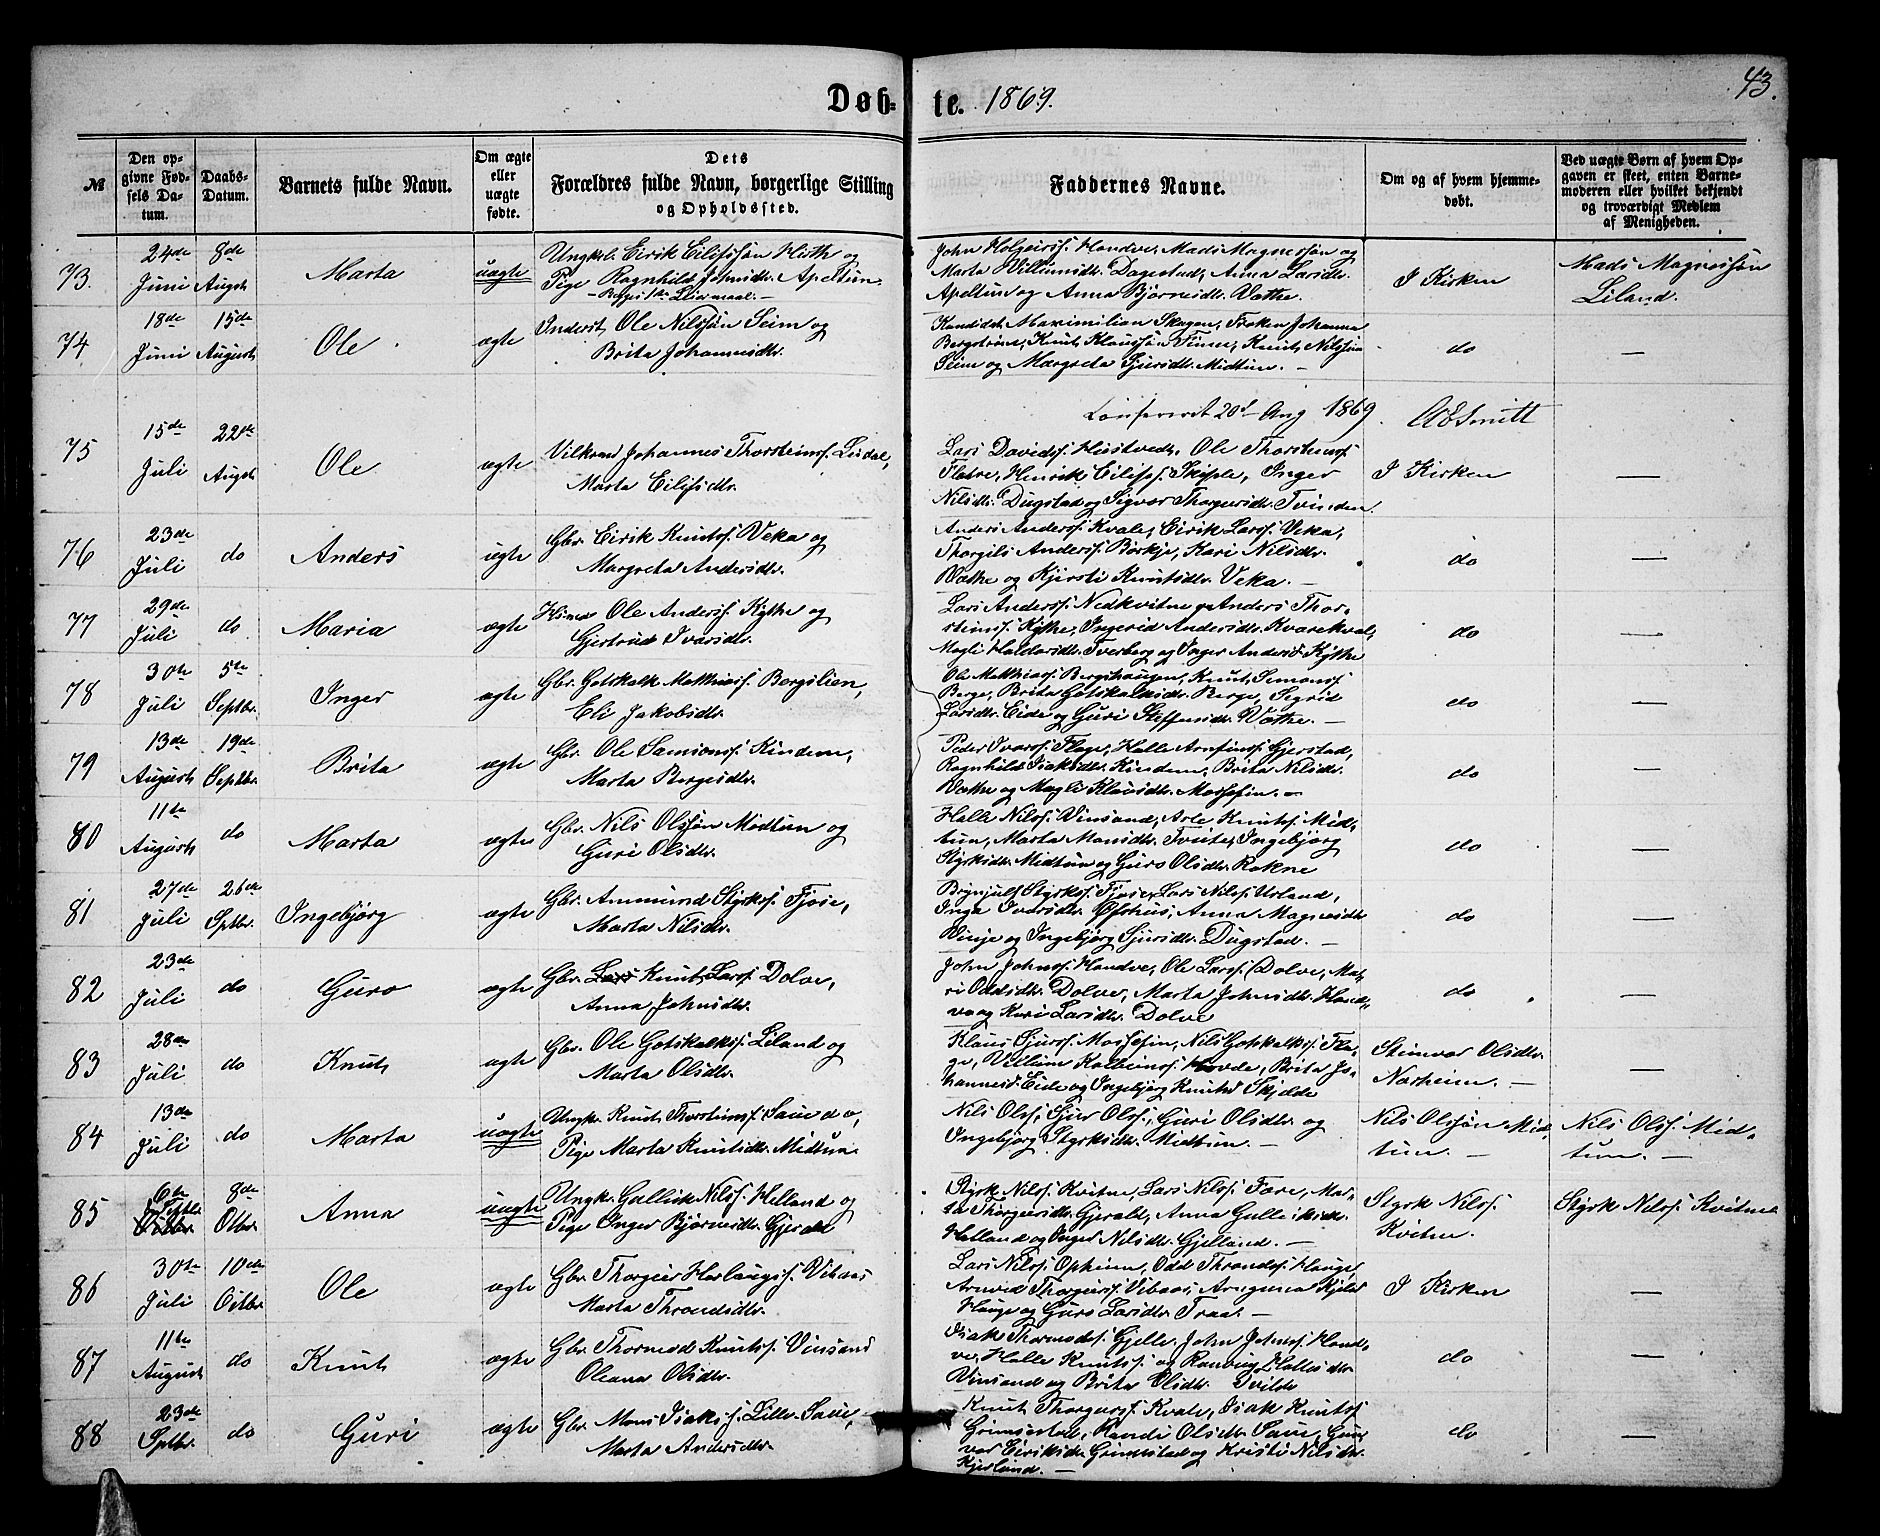 Døb- te. 1869.
43.
№
Den opgivne Fødsels Datum.
Daabs-Datum.
Barnets fulde Navn.
Om ægte eller uægte fødte.
Dets Forældres fulde Navn, borgerlige Stilling og Opholdssted.
Faddernes Navne.
Om og af hvem hjemmedøbt.
Ved uægte Børn af hvem Opgaven er skeet, enten Barnemoderen eller hvilket bekjendt og troværdigt Medlem af Menigheden.
73. 24de Juni 8de Augst Marta uægte
Ungkl. Eirik Eilifssøn Hirth og
Pige Ragnhild Johnsdtr. Apeltun.
John Holgeirss. Handve, Mads Magnessøn og
Marta Villumsdtr. Dagestad, Anna Larsdtr.
Apeltun og Anna Bjørnesdtr. Væthe.
I Kirken
Mads Magnessøn
Liland.
74 18de Juni 15de Augusti Ole ægte
Inderst Ole Nilssøn Seim og
Brita Johannesdtr.
Kandidat Maximilian Skagen, Frøken Johanna
Bergstrøm, Knut Klaussøn Finne, Knut Nilssøn
Seim og Margreta Sjursdtr. Midtun. —
do —
Konfereret 20de Aug 1869. AESmitt
75 15de Juli 22de Augst Ole ægte
Johannes Thorsteinss. Lirdal,
Marta Eilifsdtr.
Lars Davidss. Hustvedt, Ole Thorsteinss.
Flatre, Henrik Eilifss. Skiple, Inger
Nilsdtr. Dugstad og Sigvor Thorgersdtr. Tvinden.
I Kirken —
76 23de Juli do Anders ægte
Gbr. Eirik Knutss. Veka og
Margreta Andersdtr.
Anders Anderss. Kvale, Eirik Larss. Veka,
Thorgils Anderss. Børkje, Kari Nilsdtr.
Væthe og Kjersti Knutsdtr. Veka. —
do —
77 29de Juli do Maria ægte
Ole Anderss. Kythe og
Gjertrud Ivarsdtr.
Lars Anderss. Nedkvitne, Anders Thor-
steinss. Kythe, Ingerid Andersdtr. Kvarekval,
Magli Haldorsdtr. Tverberg og Inger Andersd. Kythe
do —
78 30te Juli 5te Septbr. Inger ægte
Gbr. Gotskalk Matthiass. Bergslien,
Eli Jakobsdtr.
Ole Matthiass. Bergshaugen, Knut Simonss.
Berge, Brita Gotskalksdtr. Berge, Sigrid
Larsdtr. Eide og Guri Steffensdtr. Væthe. —
do —
79 13de Augusti 19de Septbr. Brita ægte
Gbr. Ole Samsonss. Kindem,
Marta Børgesdtr.
Peder Ivarss. Flage, Halle Arnfinss. Gjerstad,
Ragnhild Isaksdtr. Kindem, Brita Nilsdtr.
Væthe og Magli Klausdtr. Mossefin. —
do —
80 11te Augusti do Marta ægte
Gbr. Nils Olssøn Midtun og
Guri Olsdtr.
Halle Nilss. Vinsand, Arle Knutss. Mid-
tun, Marta Monsdtr. Tvite, Ingebjørg
Styrksdtr. Midtun og Guro Olsdtr. Rokne
do —
81 27de Juli 26de Sptbr. Ingebjørg ægte
Gbr. Ammund Styrkss. Fjøse,
Marta Nilsdtr.
Brynjulf Styrkss. Fjøse, Lars Nilss. Urland,
Inga Ivarsdtr. Øfsthus, Anna Magnesdtr.
Vinje og Ingebjørg Sjursdtr. Dugstad. —
do —
82 23de Juli do Guro ægte
Gbr. Lars Knut Larss. Dolve,
Anna Johnsdtr.
John Johnss. Handve, Ole Larss. Dolve, Ma-
ri Oddsdtr. Dolve, Marta Johnsdtr. Hand-
ve og Kari Larsdtr. Dolve
do —
83 28de Juli do Knut ægte
Gbr. Ole Gotskalkss. Liland og
Marta Olsdtr.
Klaus Sjurss. Mossefin, Nils Gotskalkss. Fla-
ge, Villum Kolbeinss. Hovde, Brita Jo-
hannesd. Eide og Ingebjørg Knutsd. Skjelde
Steinvor Olsdtr.
Næsheim. — —
84 13de Juli do Marta uægte
Ungk. Knut Thorsteinss. Saude,
Pige Marta Knutsdtr. Midtun
Nils Olss., Sjur Olss., Guri Olsdtr. og
Ingebjørg Styrksdtr. Midtun. —
Nils Olssøn Mid-
tun. —
Nils Olss. Mid-
tun. —
85 6te Septbr. 8de Otbr. Anna uægte
Ungk. Gullik Nilss. Helland og
Pige Inger Bjørnesdtr. Gjerald
Styrk Nilss. Kvitne, Lars Nilss. Fære, Mar-
ta Thorgersdtr. Gjerald, Anna Gulleiksdtr.
Helland og Inger Nilsdtr. Gjelland. —
Styrk Nilss.
Kvitne.
Styrk Nilss. Kvitne
86 30te Juli 10de Octbr. Ole ægte
Gbr. Thorgeir Herlaugss. Vibaas
Marta Throndsdtr.
Lars Nilss. Opheim, Odd Throndss. Hauge,
Arnvid Thorgeirss. Vibaas, Arngunna Kjelsd.
Hauge og Guro Larsdtr. Traa. —
I Kirken —
87 11te August do Knut ægte
Gbr. Thormod Knutss. Vinsand
Oleana Olsdtr.
Isak Thormodss. Gjelle, John Johnss. Hand-
ve, Halle Knutss. og Ranveig Hallesdtr.
Vinsand og Brita Olsdtr. Tvilde
do —
88 23de Sptbr. do Guri ægte
Gbr. Mons Isakss. Lille-Saue,
Marta Andersdtr.
Knut Thorgerss. Kvale, Isak Knutss.
Grimestad, Randi Olsdtr. Saue, Gun-
vor Eiriksdtr. Grimestad og Kristi Nilsdtr.
Kjerland. —
do —